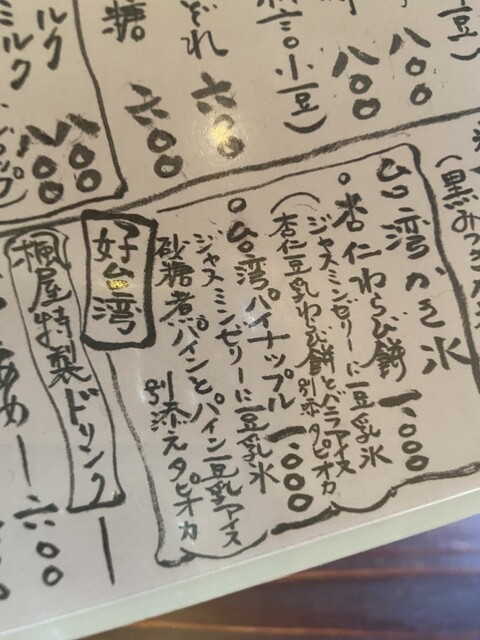 小豆)
八〇〇
八〇〇
小豆)
どれ
六〇〇
糖
六〇〇
ルク
ミルク
八〇〇
八〇〇
(黒みつ
台湾かき氷
○杏仁わらび餅 一、〇〇〇
ジャスミンゼリーに豆乳氷
杏仁豆乳わらび餅とバニラアイス
別添タピオカ
○台湾パイナップル 一、〇〇〇
ジャスミンゼリーに豆乳氷
砂糖煮パインとパイン豆乳アイス
別添えタピオカ
好台湾
楓屋特製ドリンク
あめー六〇〇